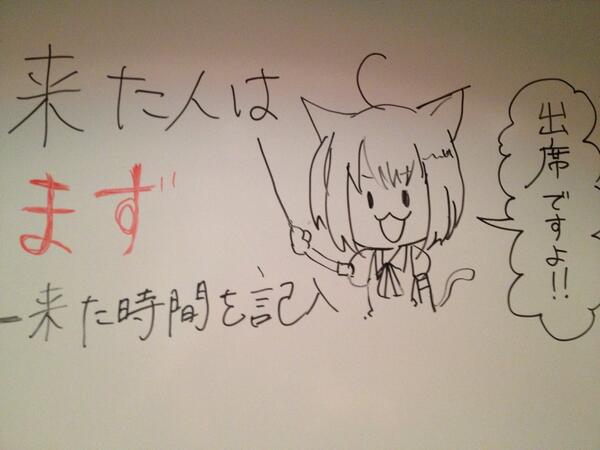 来た人は
まず
-来た時間を記入
出席ですよ!!